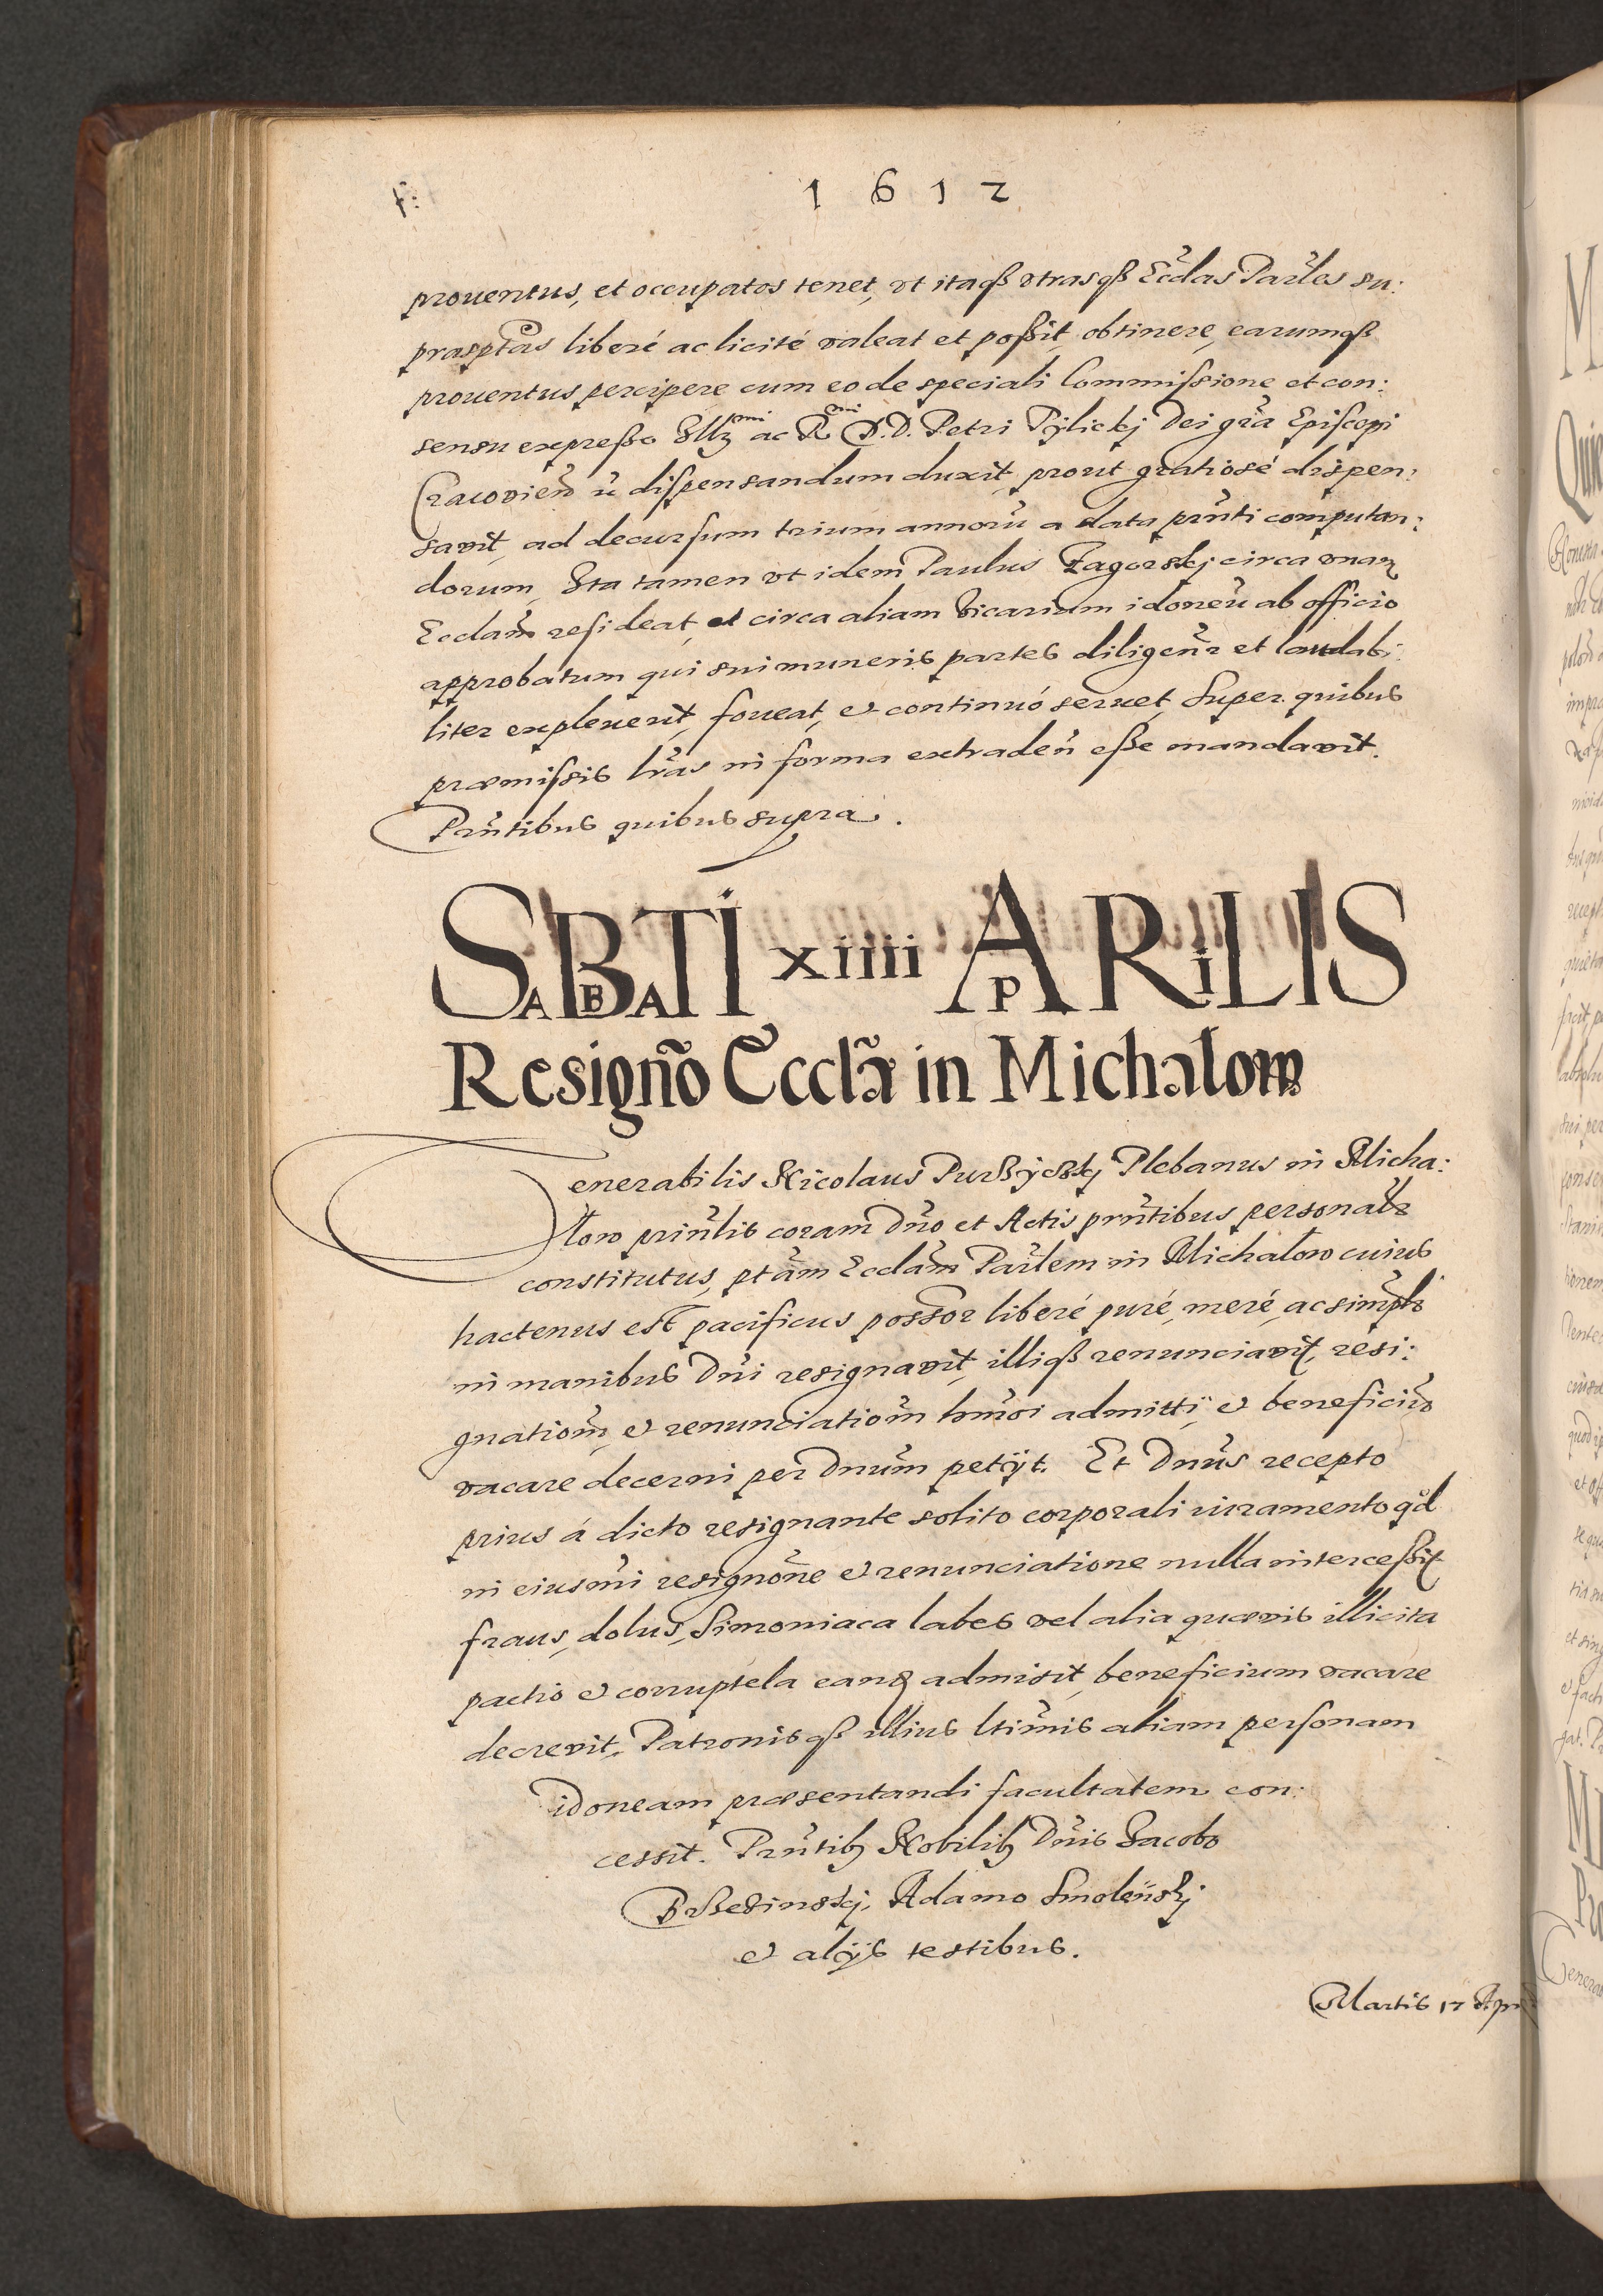 f:
1612
prouentus, et occupatos tenet, vt itaqß vtrasqß Eccl̃as Par̃les su:
prasp̃tas liberé ac licité valeat et poßit obtinere, earumqß
prouentus percipere cum eo de speciali Commissione et con:
sensu expreßo Illʒ̃mi ac R̃mi D.D. Petri Tÿlickj Dei gr̃a Episcopi
Cracovieñ ũ dispensandum duxit, prout gratiosé dispen:
savit, ad decursum trium annorũ a data pr̃nti computan:
dorum, Ita tamen vt idem Paulus Zagorskj circa vnam
Eccl̃am resideat, et circa aliam Vicarium idoneũ ab officio
approbatum qui sui muneris partes diligent̃r et laudabi:
liter expleuerit, foueat, et continuó seruet, Super quibus
præmissis lr̃as in forma extradeñ eße mandavit.
Pr̃ntibus quibus supra.
SABBATI xiiii APRiLIS
Resigñο Eccl̃æ in Michałow
Venerabilis Nicolaus Purßÿczkj Plebanus in Micha:
łow prin̄lis coram Dño et Actis pr̃ntibus personalr̃
constitutus, p̃tam Eccl̃am Par̃lem in Michałow cuius
hactenus est pacificus possor liberé puré, meré, ac simplr̃
in manibus Dñi resignavit, illiqß renunciavit, resi:
gnatiom̃, et renunciatiom̃ hm̃oi admitti, et beneficiũ
vacare decerni per Dnũm petÿt. Et Dnũs recepto
prius á dicto resignante solito corporali iuramento qd̃
in eiusm̃i resignõne et renunciatione nulla interceßit
fraus, dolus, Simoniaca labes vel alia quævis illicita
pactio et corruptela eanq admisit, beneficium vacare
decrevit, Patronisqß illius ltim̃is aliam personam
idoneam præsentandi facultatem con:
cessit. Pr̃ntibʒ Nobilibʒ Dñis Jacobo
Brßezinskj, Adamo Smoleńskj
et alÿs testibus.
Martis 17 Apr